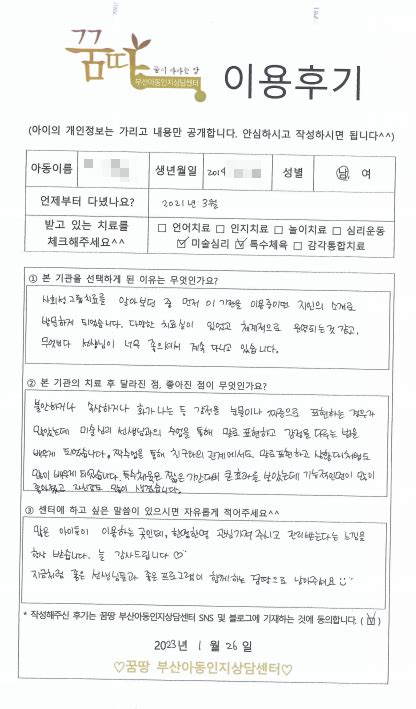 꿈땅
꿈이 자라는 땅
부산아동인지상담센터
이용후기
(아이의 개인정보는 가리고 내용만 공개합니다. 안심하시고 작성하시면 됩니다^^)
아동이름 생년월일 2014 성별 남, 여
언제부터 다녔나요? 2021년 3월
받고 있는 치료를 체크해주세요^^
□ 언어치료 □ 인지치료 □ 놀이치료 □ 심리운동
☑ 미술심리 ☑ 특수체육 □ 감각통합치료
① 본 기관을 선택하게 된 이유는 무엇인가요?
사회성 그룹치료를 알아보던 중 먼저 이 기관을 이용중이던 지인의 소개로
방문하게 되었습니다. 다양한 치료실이 있었고 체계적으로 운영되는것 같고,
무엇보다 선생님이 너무 좋으셔서 계속 다니고 있습니다.
② 본 기관의 치료 후 달라진 점, 좋아진 점이 무엇인가요?
불안하거나 속상하거나 화가나는 등 감정을 눈물이나 짜증으로 표현하는 경우가
많았는데 미술심리 선생님과의 수업을 통해 말로 표현하고 감정을 다루는 법을
배우게 되었습니다. 짝수업을 통해 친구와의 관계에서도 말로표현하고 상황대처법도
많이 배우게 되었습니다. 특수체육은 짧은 기간대비 큰 효과를 보았는데 기능적인면이 많이
좋아졌고 자신감도 많이 생겼습니다.
③ 센터에 하고 싶은 말씀이 있으시면 자유롭게 적어주세요^^
많은 아이들이 이용하는 곳인데, 한명한명 관심가져 주시고 관리받는다는 느낌을
항상 받습니다. 늘 감사드립니다 ♡
지금처럼 좋은 선생님들과 좋은 프로그램이 함께하는 꿈땅으로 남아주세요 :)
* 작성해주신 후기는 꿈땅 부산아동인지상담센터 SNS 및 블로그에 기재하는 것에 동의합니다. ( ☑ )
2023년 1월 26일
♡꿈땅 부산아동인지상담센터♡